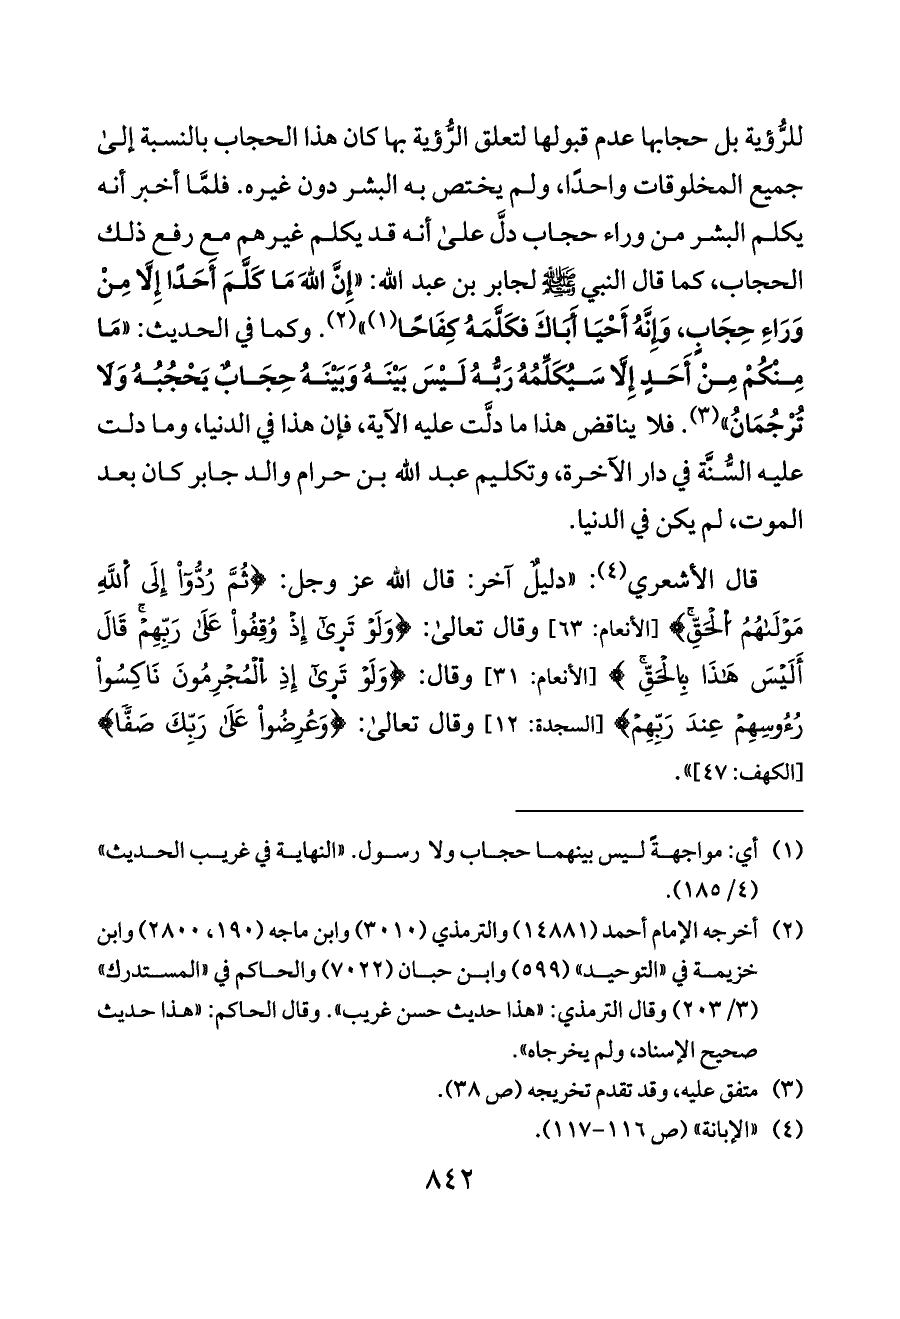 للرُّؤية بل حجابها عدم قبولها لتعلق الرُّؤية بها كان هذا الحجاب بالنسبة إلىٰ
جميع المخلوقات واحدًا، ولم يختص به البشر دون غيره. فلمَّا أخبر أنه
يكلم البشر من وراء حجاب دلَّ علىٰ أنه قد يكلم غيرهم مع رفع ذلك
الحجاب، كما قال النبي ﷺ لجابر بن عبد الله: «إِنَّ اللهَ مَا كَلَّمَ أَحَدًا إِلَّا مِنْ
وَرَاءِ حِجَابٍ، وَإِنَّهُ أَحْيَا أَبَاكَ فكَلَّمَهُ كِفَاحًا(١)»(٢). وكما في الحديث: «مَا
مِنْكُمْ مِنْ أَحَدٍ إِلَّا سَيُكَلِّمُهُ رَبُّهُ لَيْسَ بَيْنَهُ وَبَيْنَهُ حِجَابٌ يَحْجُبُهُ وَلَا
تُرْجُمَانُ»(٣). فلا يناقض هذا ما دلَّت عليه الآية، فإن هذا في الدنيا، وما دلت
عليه السُّنَّة في دار الآخرة، وتكليم عبد الله بن حرام والد جابر كان بعد
الموت، لم يكن في الدنيا.
قال الأشعري(٤): «دليلٌ آخر: قال الله عز وجل: ﴿ثُمَّ رُدُّوٓاْ إِلَى ٱللَّهِ
مَوْلَىٰهُمُ ٱلْحَقِّۚ﴾ [الأنعام: ٦٣] وقال تعالىٰ: ﴿وَلَوْ تَرِىٰٓ إِذْ وُقِفُواْ عَلَىٰ رَبِّهِمْۚ قَالَ
أَلَيْسَ هَٰذَا بِالْحَقِّۚ﴾ [الأنعام: ٣١] وقال: ﴿وَلَوْ تَرِىٰٓ إِذِ اِ۬لْمُجْرِمُونَ نَاكِسُواْ
رُءُوسِهِمْ عِندَ رَبِّهِمْ﴾ [السجدة: ١٢] وقال تعالىٰ: ﴿وَعُرِضُواْ عَلَىٰ رَبِّكَ صَفّٗا﴾
[الكهف: ٤٧]».
(١) أي: مواجهةً ليس بينهما حجاب ولا رسول. «النهاية في غريب الحديث»
(٤/ ١٨٥).
(٢) أخرجه الإمام أحمد (١٤٨٨١) والترمذي (٣٠١٠) وابن ماجه (١٩٠، ٢٨٠٠) وابن
خزيمة في «التوحيد» (٥٩٩) وابن حبان (٧٠٢٢) والحاكم في «المستدرك»
(٣/ ٢٠٣) وقال الترمذي: «هذا حديث حسن غريب». وقال الحاكم: «هذا حديث
صحيح الإسناد، ولم يخرجاه».
(٣) متفق عليه، وقد تقدم تخريجه (ص ٣٨).
(٤) «الإبانة» (ص ١١٦-١١٧).
٨٤٢